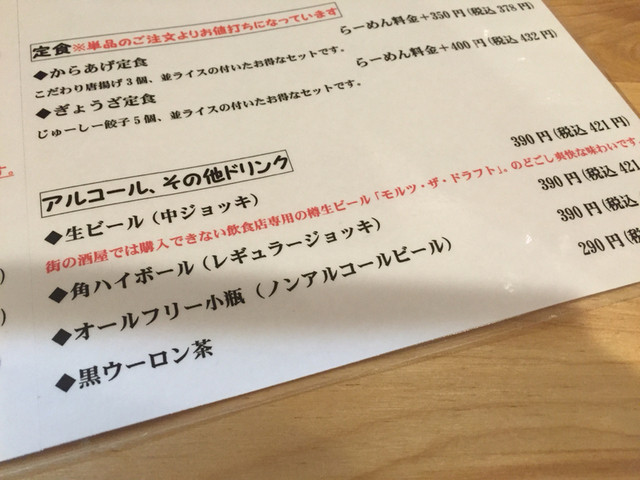 定食※単品のご注文よりお値打ちになっています
◆からあげ定食 らーめん料金＋350円(税込 378円)
こだわり唐揚げ3個、並ライスの付いたお得なセットです。
◆ぎょうざ定食 らーめん料金＋400円(税込 432円)
じゅーしー餃子5個、並ライスの付いたお得なセットです。
アルコール、その他ドリンク
◆生ビール（中ジョッキ） 390円(税込 421円)
街の酒屋では購入できない飲食店専用の樽生ビール「モルツ・ザ・ドラフト」。のどごし爽快な味わいです。
◆角ハイボール（レギュラージョッキ） 390円(税込 421
◆オールフリー小瓶（ノンアルコールビール） 390円(税込
◆黒ウーロン茶 290円(税
す。
)
)